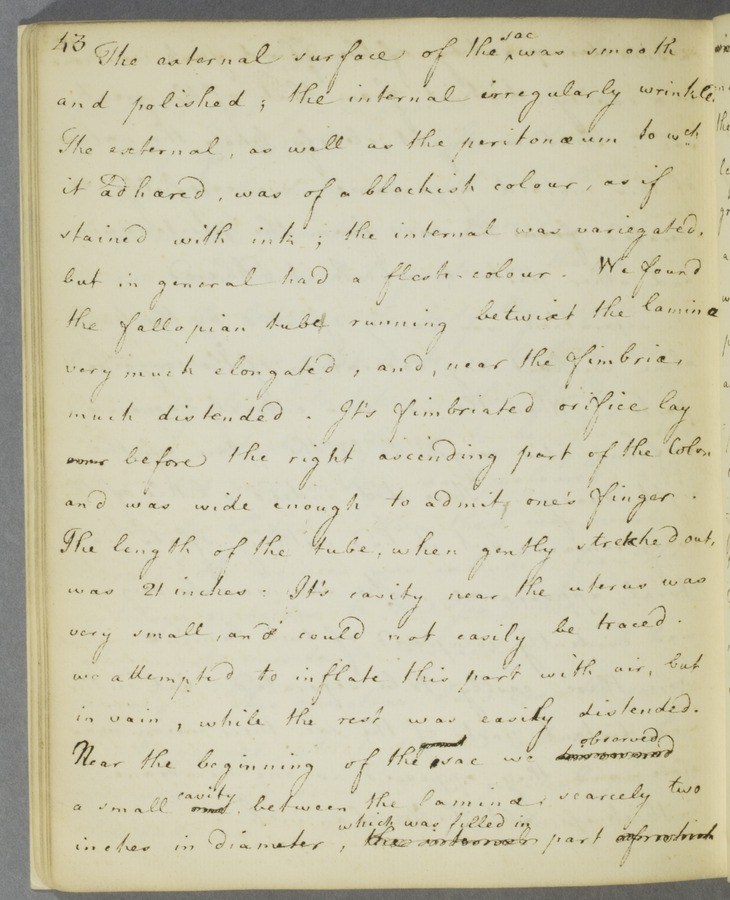 43 The external surface of the sac was smooth
and polished; the internal irregularly wrinkle
The external, as well as the peritonæum to wch
it adhæred, was of a blackish colour, as if
stained with ink; the internal was variegated,
but in general had a flesh-colour. We found
the fallopian tube running betwixt the laminæ
very much elongated, and, near the fimbriæ,
much distended. It's fimbriated orifice lay
before the right ascending part of the Colon
and was wide enough to admit one's finger.
The length of the tube, when gently stretched out,
was 21 inches: It's cavity near the uterus was
very small, and could not easily be traced.
we attempted to inflate this part with air, but
in vain, while the rest was easily distended.
Near the beginning of the sac we observed
a small cavity between the laminæ, scarcely two
inches in diameter, which was filled in the internal part of which